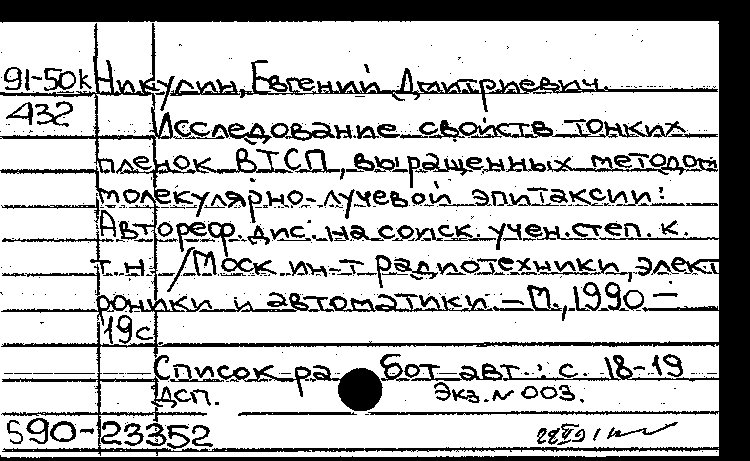 91-50к Никулин, Евгений Дмитриевич.
432 Исследование свойств тонких
пленок ВТСП, выращенных методом
молекулярно-лучевой эпитаксии:
Автореф. дис. на соиск. учен. степ. к.
т.н. /Моск. ин-т радиотехники, элект
роники и автоматики. – М., 1990 –
19с
Список ра бот авт.: с. 18-19
ДСП. Экз. № 003.
590-23352